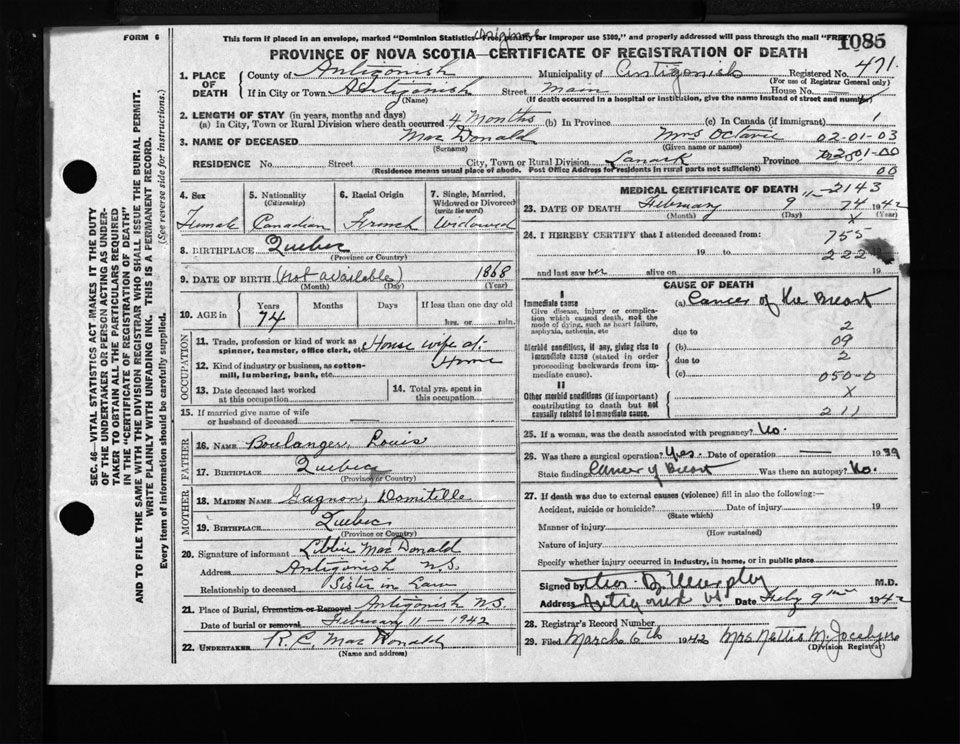 FORM 6
This form if placed in an envelope, marked "Dominion Statistics—Free, penalty for improper use $300," and properly addressed will pass through the mail "FREE"
Original
1085
PROVINCE OF NOVA SCOTIA—CERTIFICATE OF REGISTRATION OF DEATH
1. PLACE OF DEATH
County of Antigonish Municipality of Antigonish Registered No. 471
(For use of Registrar General only)
If in City or Town Antigonish Street Main House No. —
(Name) (If death occurred in a hospital or institution, give the name instead of street and number)
2. LENGTH OF STAY (in years, months and days)
(a) In City, Town or Rural Division where death occurred 4 Months (b) In Province (c) In Canada (if immigrant) 1
3. NAME OF DECEASED Mac Donald Mrs Octavie 02-01-03
(Surname) (Given name or names)
RESIDENCE No. Street City, Town or Rural Division Lanark Province 01-00
(Residence means usual place of abode. Post Office Address for residents in rural parts not sufficient) 00
4. Sex
Female
5. Nationality (Citizenship)
Canadian
6. Racial Origin
French
7. Single, Married, Widowed or Divorced (write the word)
Widowed
8. BIRTHPLACE Quebec
(Province or Country)
9. DATE OF BIRTH (not available) 1868
(Month) (Day) (Year)
10. AGE in Years Months Days If less than one day old
74 hrs. or min.
OCCUPATION
11. Trade, profession or kind of work as spinner, teamster, office clerk, etc. House wife at Home
12. Kind of industry or business, as cotton-mill, lumbering, bank, etc.
13. Date deceased last worked at this occupation
14. Total yrs. spent in this occupation
15. If married give name of wife or husband of deceased
FATHER
16. NAME Boulanger, Louis
17. BIRTHPLACE Quebec
(Province or Country)
MOTHER
18. MAIDEN NAME Gagnon, Domitille
19. BIRTHPLACE Quebec
(Province or Country)
20. Signature of informant Libbie Mac Donald
Address Antigonish N.S.
Relationship to deceased Sister in Law
21. Place of Burial, Cremation or Removal Antigonish N.S.
Date of burial or removal February 11 — 1942
22. UNDERTAKER R. C. Mac Donald
(Name and address)
MEDICAL CERTIFICATE OF DEATH 11-2143
23. DATE OF DEATH February 9 74 1942
(Month) (Day) X (Year)
24. I HEREBY CERTIFY that I attended deceased from: 755
19 to 222 19
and last saw her alive on 19
CAUSE OF DEATH
I
Immediate cause (a) Cancer of the Breast
Give disease, injury or complication which caused death, not the mode of dying, such as heart failure, asphyxia, asthenia, etc
due to 2
Morbid conditions, if any, giving rise to immediate cause (stated in order proceeding backwards from immediate cause).
(b) 09
due to 2
(c) 050-0
II
Other morbid conditions (if important) contributing to death but not causally related to immediate cause.
X
211
25. If a woman, was the death associated with pregnancy? No.
26. Was there a surgical operation? Yes. Date of operation — 1939
State findings Cancer of Breast Was there an autopsy? No.
27. If death was due to external causes (violence) fill in also the following:—
Accident, suicide or homicide? Date of injury 19
(State which)
Manner of injury
(How sustained)
Nature of injury
Specify whether injury occurred in industry, in home, or in public place
Signed by B. Murphy M.D.
Address Antigonish Date Feby 9th 1942
28. Registrar's Record Number
29. Filed March 6th 1942 Mrs Nettie M. Jocelyn
(Division Registrar)
SEC. 46—VITAL STATISTICS ACT MAKES IT THE DUTY
OF THE UNDERTAKER OR PERSON ACTING AS UNDERTAKER TO OBTAIN ALL THE PARTICULARS REQUIRED
IN THE "CERTIFICATE OF REGISTRATION OF DEATH"
AND TO FILE THE SAME WITH THE DIVISION REGISTRAR WHO SHALL ISSUE THE BURIAL PERMIT.
WRITE PLAINLY WITH UNFADING INK. THIS IS A PERMANENT RECORD.
Every item of information should be carefully supplied. (See reverse side for instructions.)